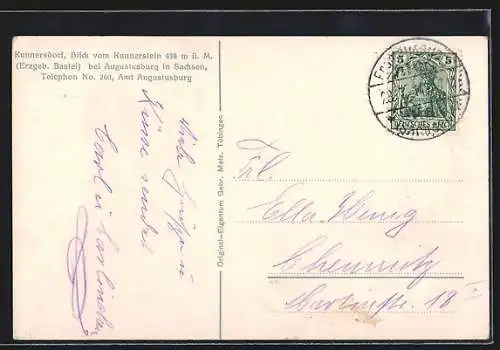 Kunnersdorf, Blick vom Kunnerstein 438 m ü. M.
(Erzgeb. Bastei) bei Augustusburg in Sachsen,
Telephon No. 260, Amt Augustusburg
Viele Grüße u
Küsse sendet
Carl u
Original-Eigentum Gebr. Metz, Tübingen
5 5
DEUTSCHES REICH
Frl.
Ella Henig
Chemnitz
Martinstr. 18 I